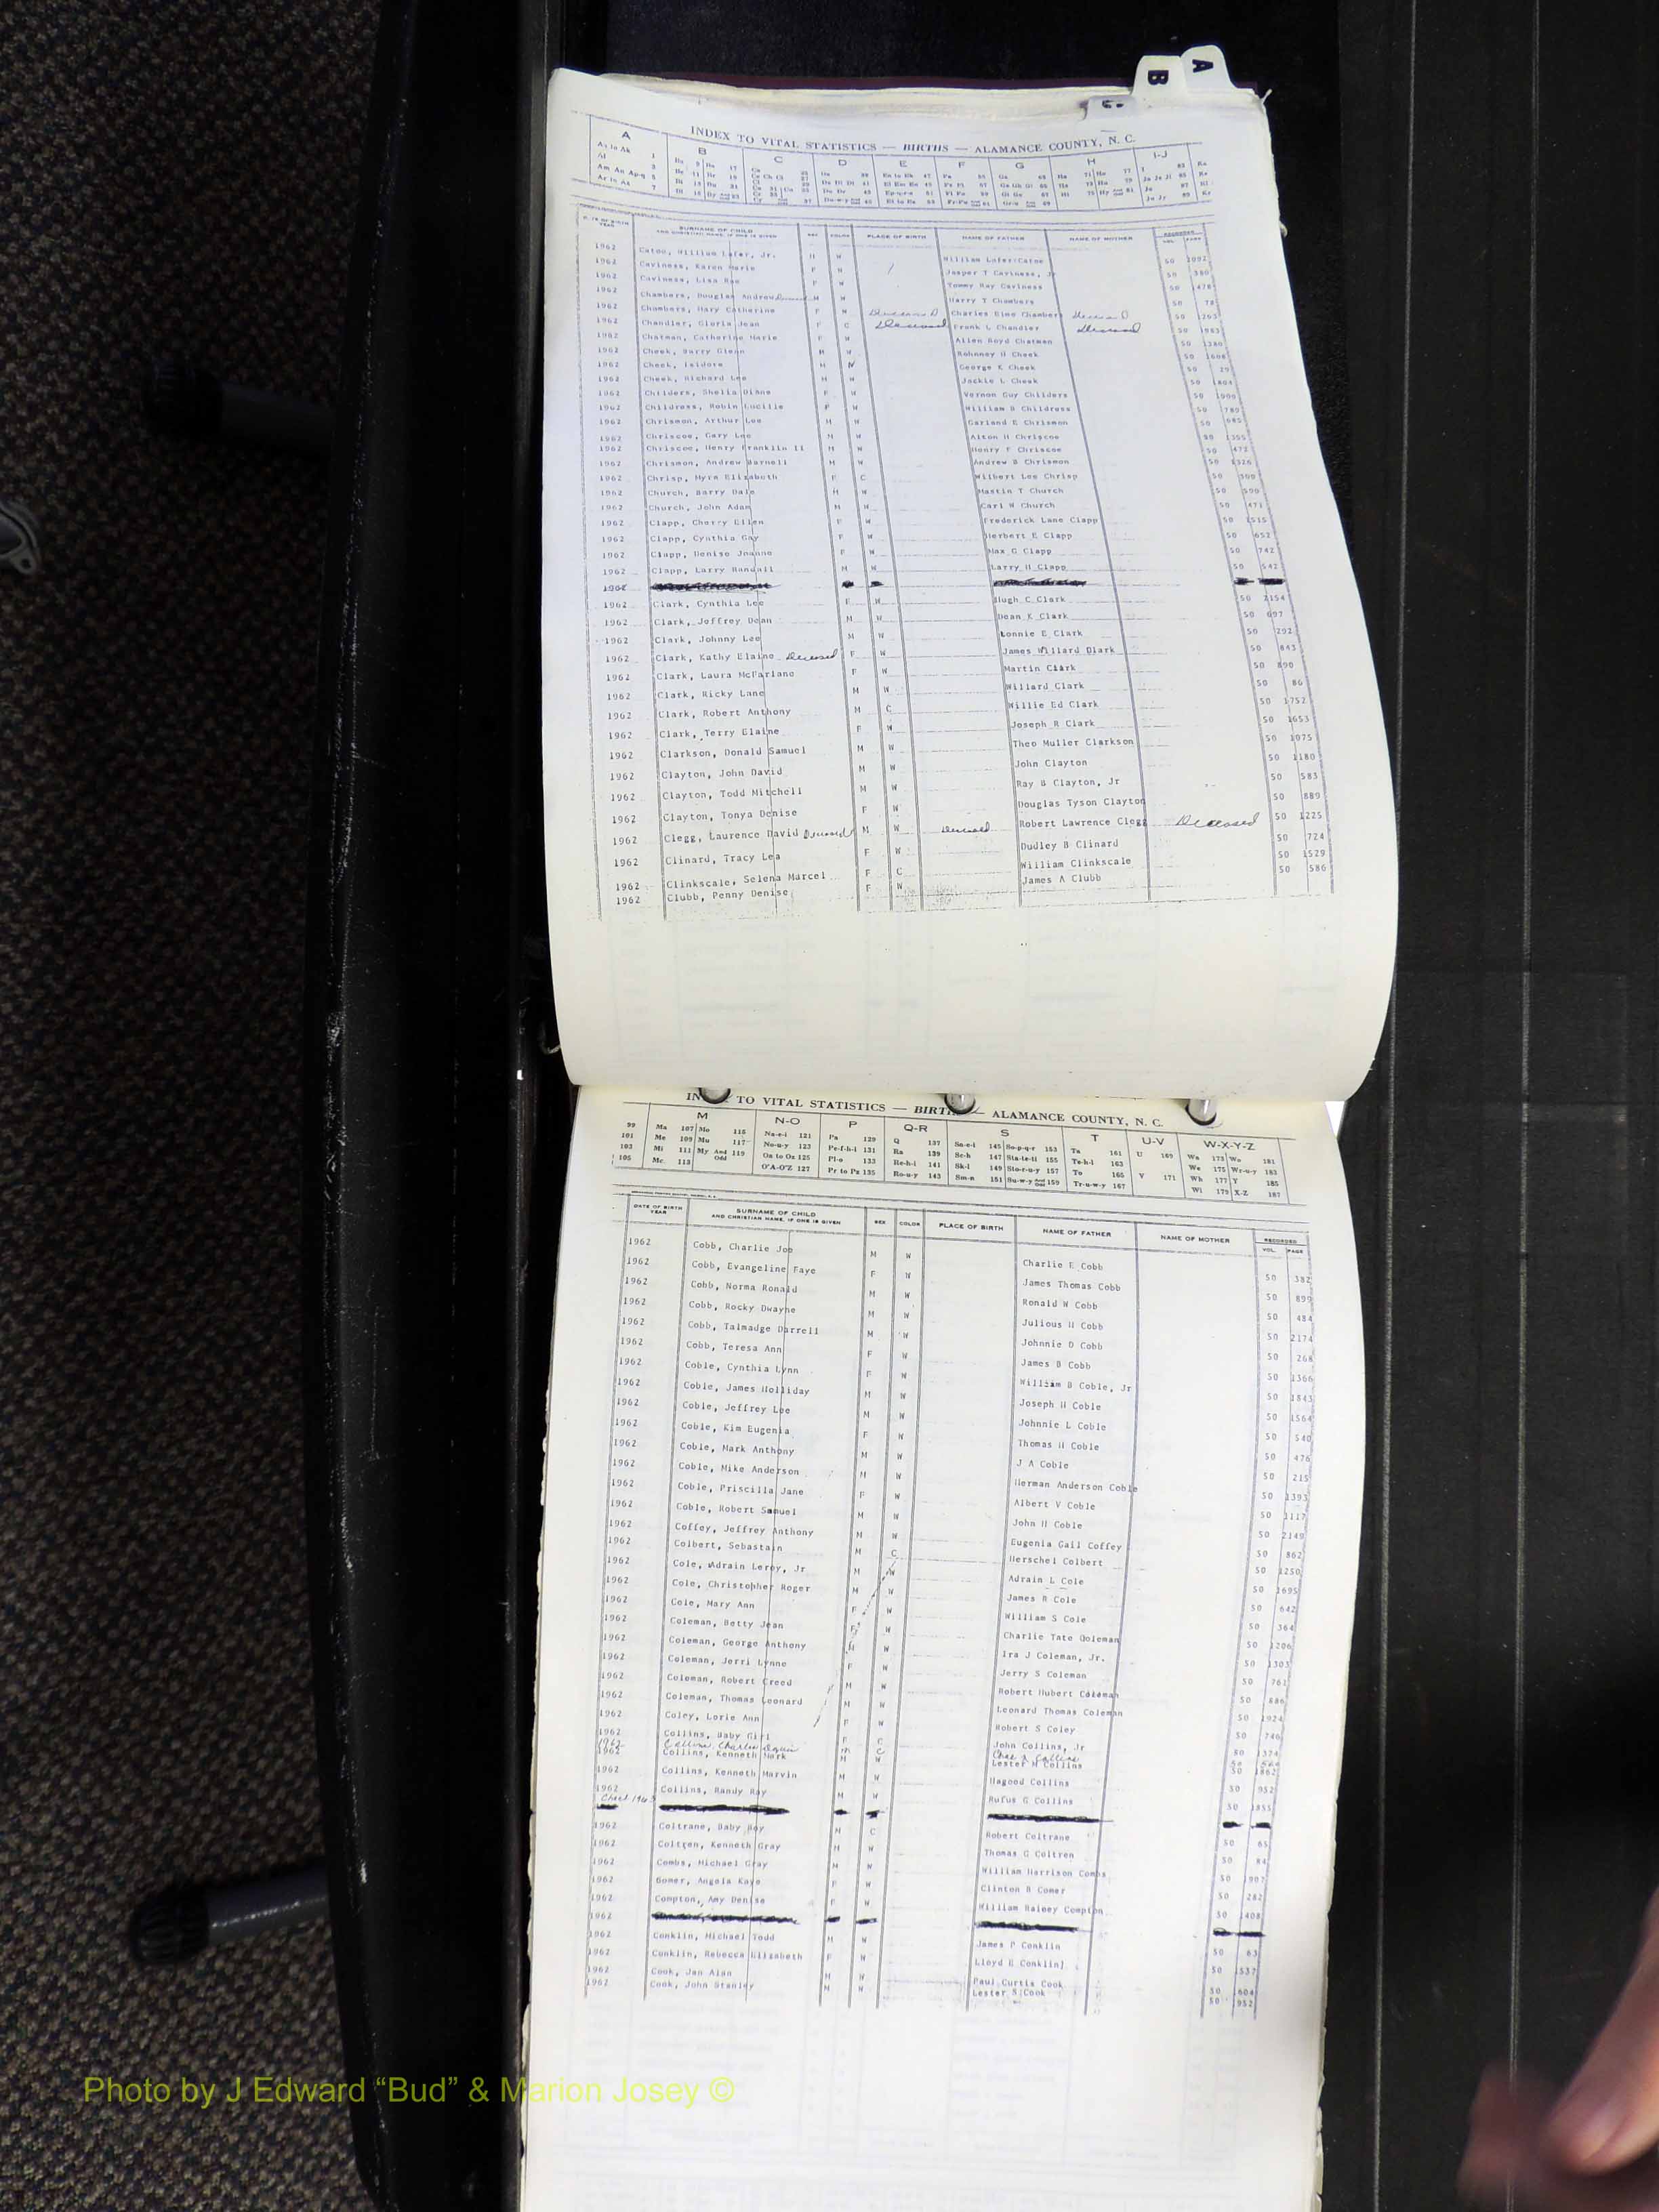 A
B
INDEX TO VITAL STATISTICS — BIRTHS — ALAMANCE COUNTY, N. C.
A B C D E F G H I-J
SURNAME OF CHILD
AND CHRISTIAN NAME, IF ONE IS GIVEN SEX COLOR PLACE OF BIRTH NAME OF FATHER NAME OF MOTHER RECORDED
VOL. PAGE
1962 Catoe, William Lafer, Jr. M W William Lafer Catoe 50 1092
1962 Caviness, Karen Marie F W Jasper T Caviness, Jr 50 380
1962 Caviness, Lisa Rae F W Tommy Ray Caviness 50 1476
1962 Chambers, Douglas Andrew Deceased M W Harry T Chambers 50 78
1962 Chambers, Mary Catherine F W Deceased Charles Eino Chambers Deceased 50 1263
1962 Chandler, Gloria Jean F C Deceased Frank L Chandler Deceased 50 1983
1962 Chatman, Catherine Marie F W Allen Boyd Chatman 50 1380
1962 Cheek, Barry Glenn M W Rohnney H Cheek 50 1608
1962 Cheek, Isidore M W George K Cheek 50 29
1962 Cheek, Richard Lee M W Jackie L Cheek 50 1804
1962 Childers, Shelia Diane F W Vernon Guy Childers 50 1999
1962 Childress, Robin Lucille F W William B Childress 50 789
1962 Chrismon, Arthur Lee M W Garland E Chrismon 50 685
1962 Chriscoe, Gary Lee M W Alton H Chriscoe 50 1355
1962 Chriscoe, Henry Franklin II M W Henry F Chriscoe 50 472
1962 Chrismon, Andrew Darnell M W Andrew B Chrismon 50 1326
1962 Chrisp, Myra Elizabeth F C Wilbert Lee Chrisp 50 309
1962 Church, Barry Dale M W Mastin T Church 50 590
1962 Church, John Adam M W Carl W Church 50 471
1962 Clapp, Cherry Ellen F W Frederick Lane Clapp 50 1515
1962 Clapp, Cynthia Gay F W Herbert E Clapp 50 652
1962 Clapp, Denise Joanne F W Max G Clapp 50 742
1962 Clapp, Larry Randall M W Larry H Clapp 50 542
1962
1962 Clark, Cynthia Lee F W Hugh C Clark 50 2154
1962 Clark, Jeffrey Dean M W Dean K Clark 50 697
1962 Clark, Johnny Lee M W Lonnie E Clark 50 292
1962 Clark, Kathy Elaine Deceased F W James Willard Dlark 50 843
1962 Clark, Laura McFarlane F W Martin Clark 50 890
1962 Clark, Ricky Lane M W Willard Clark 50 86
1962 Clark, Robert Anthony M C Willie Ed Clark 50 1752
1962 Clark, Terry Elaine F W Joseph R Clark 50 1653
1962 Clarkson, Donald Samuel M W Theo Muller Clarkson 50 1075
1962 Clayton, John David M W John Clayton 50 1180
1962 Clayton, Todd Mitchell M W Ray B Clayton, Jr 50 583
1962 Clayton, Tonya Denise F W Douglas Tyson Clayton 50 889
1962 Clegg, Laurence David Deceased M W Deceased Robert Lawrence Clegg Deceased 50 1225
1962 Clinard, Tracy Lea F W Dudley B Clinard 50 724
1962 Clinkscale, Selena Marcel F C William Clinkscale 50 1529
1962 Clubb, Penny Denise F W James A Clubb 50 586
INDEX TO VITAL STATISTICS — BIRTHS — ALAMANCE COUNTY, N. C.
M N-O P Q-R S T U-V W-X-Y-Z
99 Ma 107 Mo 115 Na-e-i 121 Pa 129 Q 137 Sa-e-i 145 So-p-q-r 153 Ta 161 U 169 Wa 173 Wo 181
101 Me 109 Mu 117 No-u-y 123 Pe-f-h-i 131 Ra 139 Sc-h 147 Sta-te-ti 155 Te-h-i 163 We 175 Wr-u-y 183
103 Mi 111 My And Odd 119 Oa to Oz 125 Pl-o 133 Re-h-i 141 Sk-l 149 Sto-r-u-y 157 To 165 V 171 Wh 177 Y 185
105 Mc 113 O'A-O'Z 127 Pr to Pz 135 Ro-u-y 143 Sm-n 151 Su-w-y And Odd 159 Tr-u-w-y 167 Wi 179 X-Z 187
DATE OF BIRTH
YEAR SURNAME OF CHILD
AND CHRISTIAN NAME, IF ONE IS GIVEN SEX COLOR PLACE OF BIRTH NAME OF FATHER NAME OF MOTHER RECORDED
VOL. PAGE
1962 Cobb, Charlie Joe M W Charlie E Cobb 50 382
1962 Cobb, Evangeline Faye F W James Thomas Cobb 50 899
1962 Cobb, Norma Ronald M W Ronald W Cobb 50 484
1962 Cobb, Rocky Dwayne M W Julious H Cobb 50 2174
1962 Cobb, Talmadge Darrell M W Johnnie D Cobb 50 268
1962 Cobb, Teresa Ann F W James B Cobb 50 1366
1962 Coble, Cynthia Lynn F W William B Coble, Jr 50 1843
1962 Coble, James Holliday M W Joseph H Coble 50 1564
1962 Coble, Jeffrey Lee M W Johnnie L Coble 50 540
1962 Coble, Kim Eugenia F W Thomas H Coble 50 476
1962 Coble, Mark Anthony M W J A Coble 50 215
1962 Coble, Mike Anderson M W Herman Anderson Coble 50 1393
1962 Coble, Priscilla Jane F W Albert V Coble 50 1117
1962 Coble, Robert Samuel M W John H Coble 50 2149
1962 Coffey, Jeffrey Anthony M W Eugenia Gail Coffey 50 862
1962 Colbert, Sebastain M C Herschel Colbert 50 1250
1962 Cole, Adrain Leroy, Jr M W Adrain L Cole 50 1695
1962 Cole, Christohher Roger M W James R Cole 50 642
1962 Cole, Mary Ann F W William S Cole 50 364
1962 Coleman, Betty Jean F W Charlie Tate Coleman 50 1206
1962 Coleman, George Anthony M W Ira J Coleman, Jr. 50 1303
1962 Coleman, Jerri Lynne F W Jerry S Coleman 50 761
1962 Coleman, Robert Creed M W Robert Hubert Coleman 50 886
1962 Coleman, Thomas Leonard M W Leonard Thomas Coleman 50 1924
1962 Coley, Lorie Ann F W Robert S Coley 50 746
1962 Collins, Baby Girl F C John Collins, Jr 50 1374
1962 Collins, Charlie M C Chas A Collins 50
1962 Collins, Kenneth Mark M W Lester M Collins 50 1862
1962 Collins, Kenneth Marvin M W Hagood Collins 50 952
1962 Collins, Randy Ray M W Rufus G Collins 50 1855
1962 Coltrane, Baby Boy M C Robert Coltrane 50 65
1962 Coltren, Kenneth Gray M W Thomas G Coltren 50 84
1962 Combs, Michael Gray M W William Harrison Combs 50 1907
1962 Gomer, Angela Kaye F W Clinton B Comer 50 282
1962 Compton, Amy Denise F W William Rainey Compton 50 1408
1962
1962 Conklin, Michael Todd M W James P Conklin 50 63
1962 Conklin, Rebecca Elizabeth F W Lloyd E Conklin 50 1537
1962 Cook, Jan Alan M W Paul Curtis Cook 50 1604
1962 Cook, John Stanley M W Lester S Cook 50 952
Photo by J Edward “Bud” & Marion Josey ©